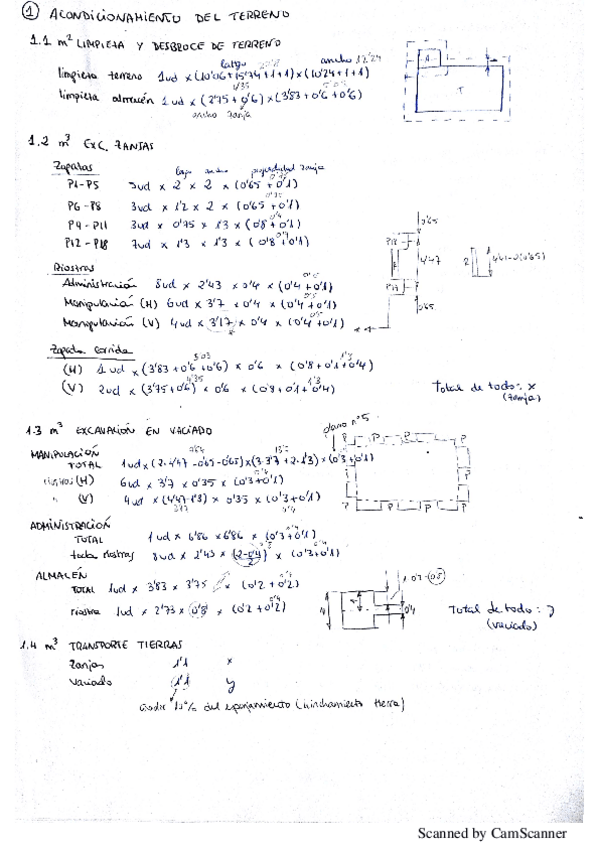 1 ACONDICIONAMIENTO DEL TERRENO
1.1 m² LIMPIEZA Y DESBROCE DE TERRENO
largo ancho 12'24
limpieza terreno 1ud x (10'06+15'74+1+1) x (10'24+1+1)
limpieza almacén 1ud x (2'75+0'6) x (3'83+0'6+0'6)
ancho zanja
A
T
1.2 m³ EXC. ZANJAS
Zapatas largo ancho profundidad zanja
P1-P5 5ud x 2 x 2 x (0'65+0'1)
P6-P8 3ud x 1'2 x 2 x (0'65+0'1)
P9-P11 3ud x 0'75 x 1'3 x (0'8+0'1)
P12-P18 7ud x 1'3 x 1'3 x (0'8+0'1)
0'65
P18
4'47
0'65
Riostras
Administración 8ud x 2'43 x 0'4 x (0'4+0'1)
Manipulación (H) 6ud x 3'7 x 0'4 x (0'4+0'1)
Manipulación (V) 4ud x 3'17 x 0'4 x (0'4+0'1)
Zapata Corrida
(H) 1ud x (3'83+0'6+0'6) x 0'6 x (0'8+0'1+0'4)
(V) 2ud x (3'75+0'6) x 0'6 x (0'8+0'1+0'4)
Total de todo: x
(zanja)
1.3 m³ EXCAVACIÓN EN VACIADO
plano nº5
P P P P
MANIPULACIÓN
TOTAL 1ud x (2·4'47-0'65-0'65) x (3·3'7+2·1'3) x (0'3+0'1)
riostras (H) 6ud x 3'7 x 0'35 x (0'3+0'1)
" (V) 4ud x (4'47-1'3) x 0'35 x (0'3+0'1)
3'17
P P P P
ADMINISTRACIÓN
TOTAL 1ud x 6'86 x 6'86 x (0'3+0'1)
todas riostras 8ud x 2'43 x x (0'3+0'1)
ALMACÉN
TOTAL 1ud x 3'83 x 3'75 x (0'2+0'2)
riostra 1ud x 2'73 x x (0'2+0'2)
0'4
Total de todo: y
(vaciado)
1.4 m³ TRANSPORTE TIERRAS
Zanjas 1'1 x
Vaciado 1'1 y
añadir 10% del esponjamiento (hinchamiento tierra)
Scanned by CamScanner